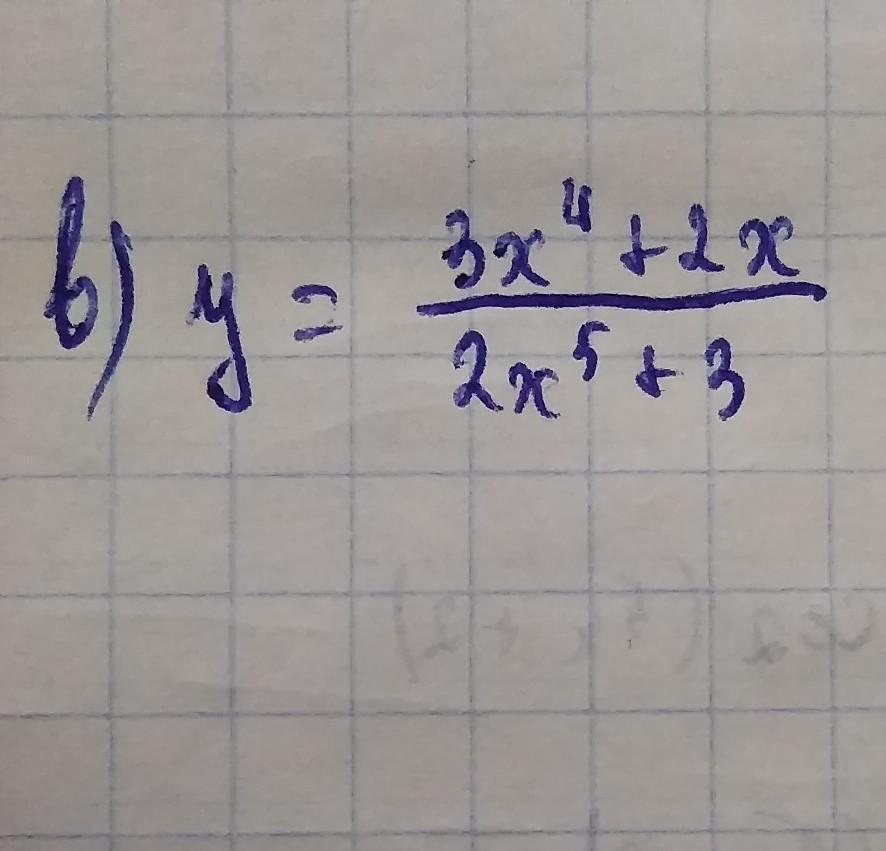 в) y = (3x⁴ + 2x) / (2x⁵ + 3)